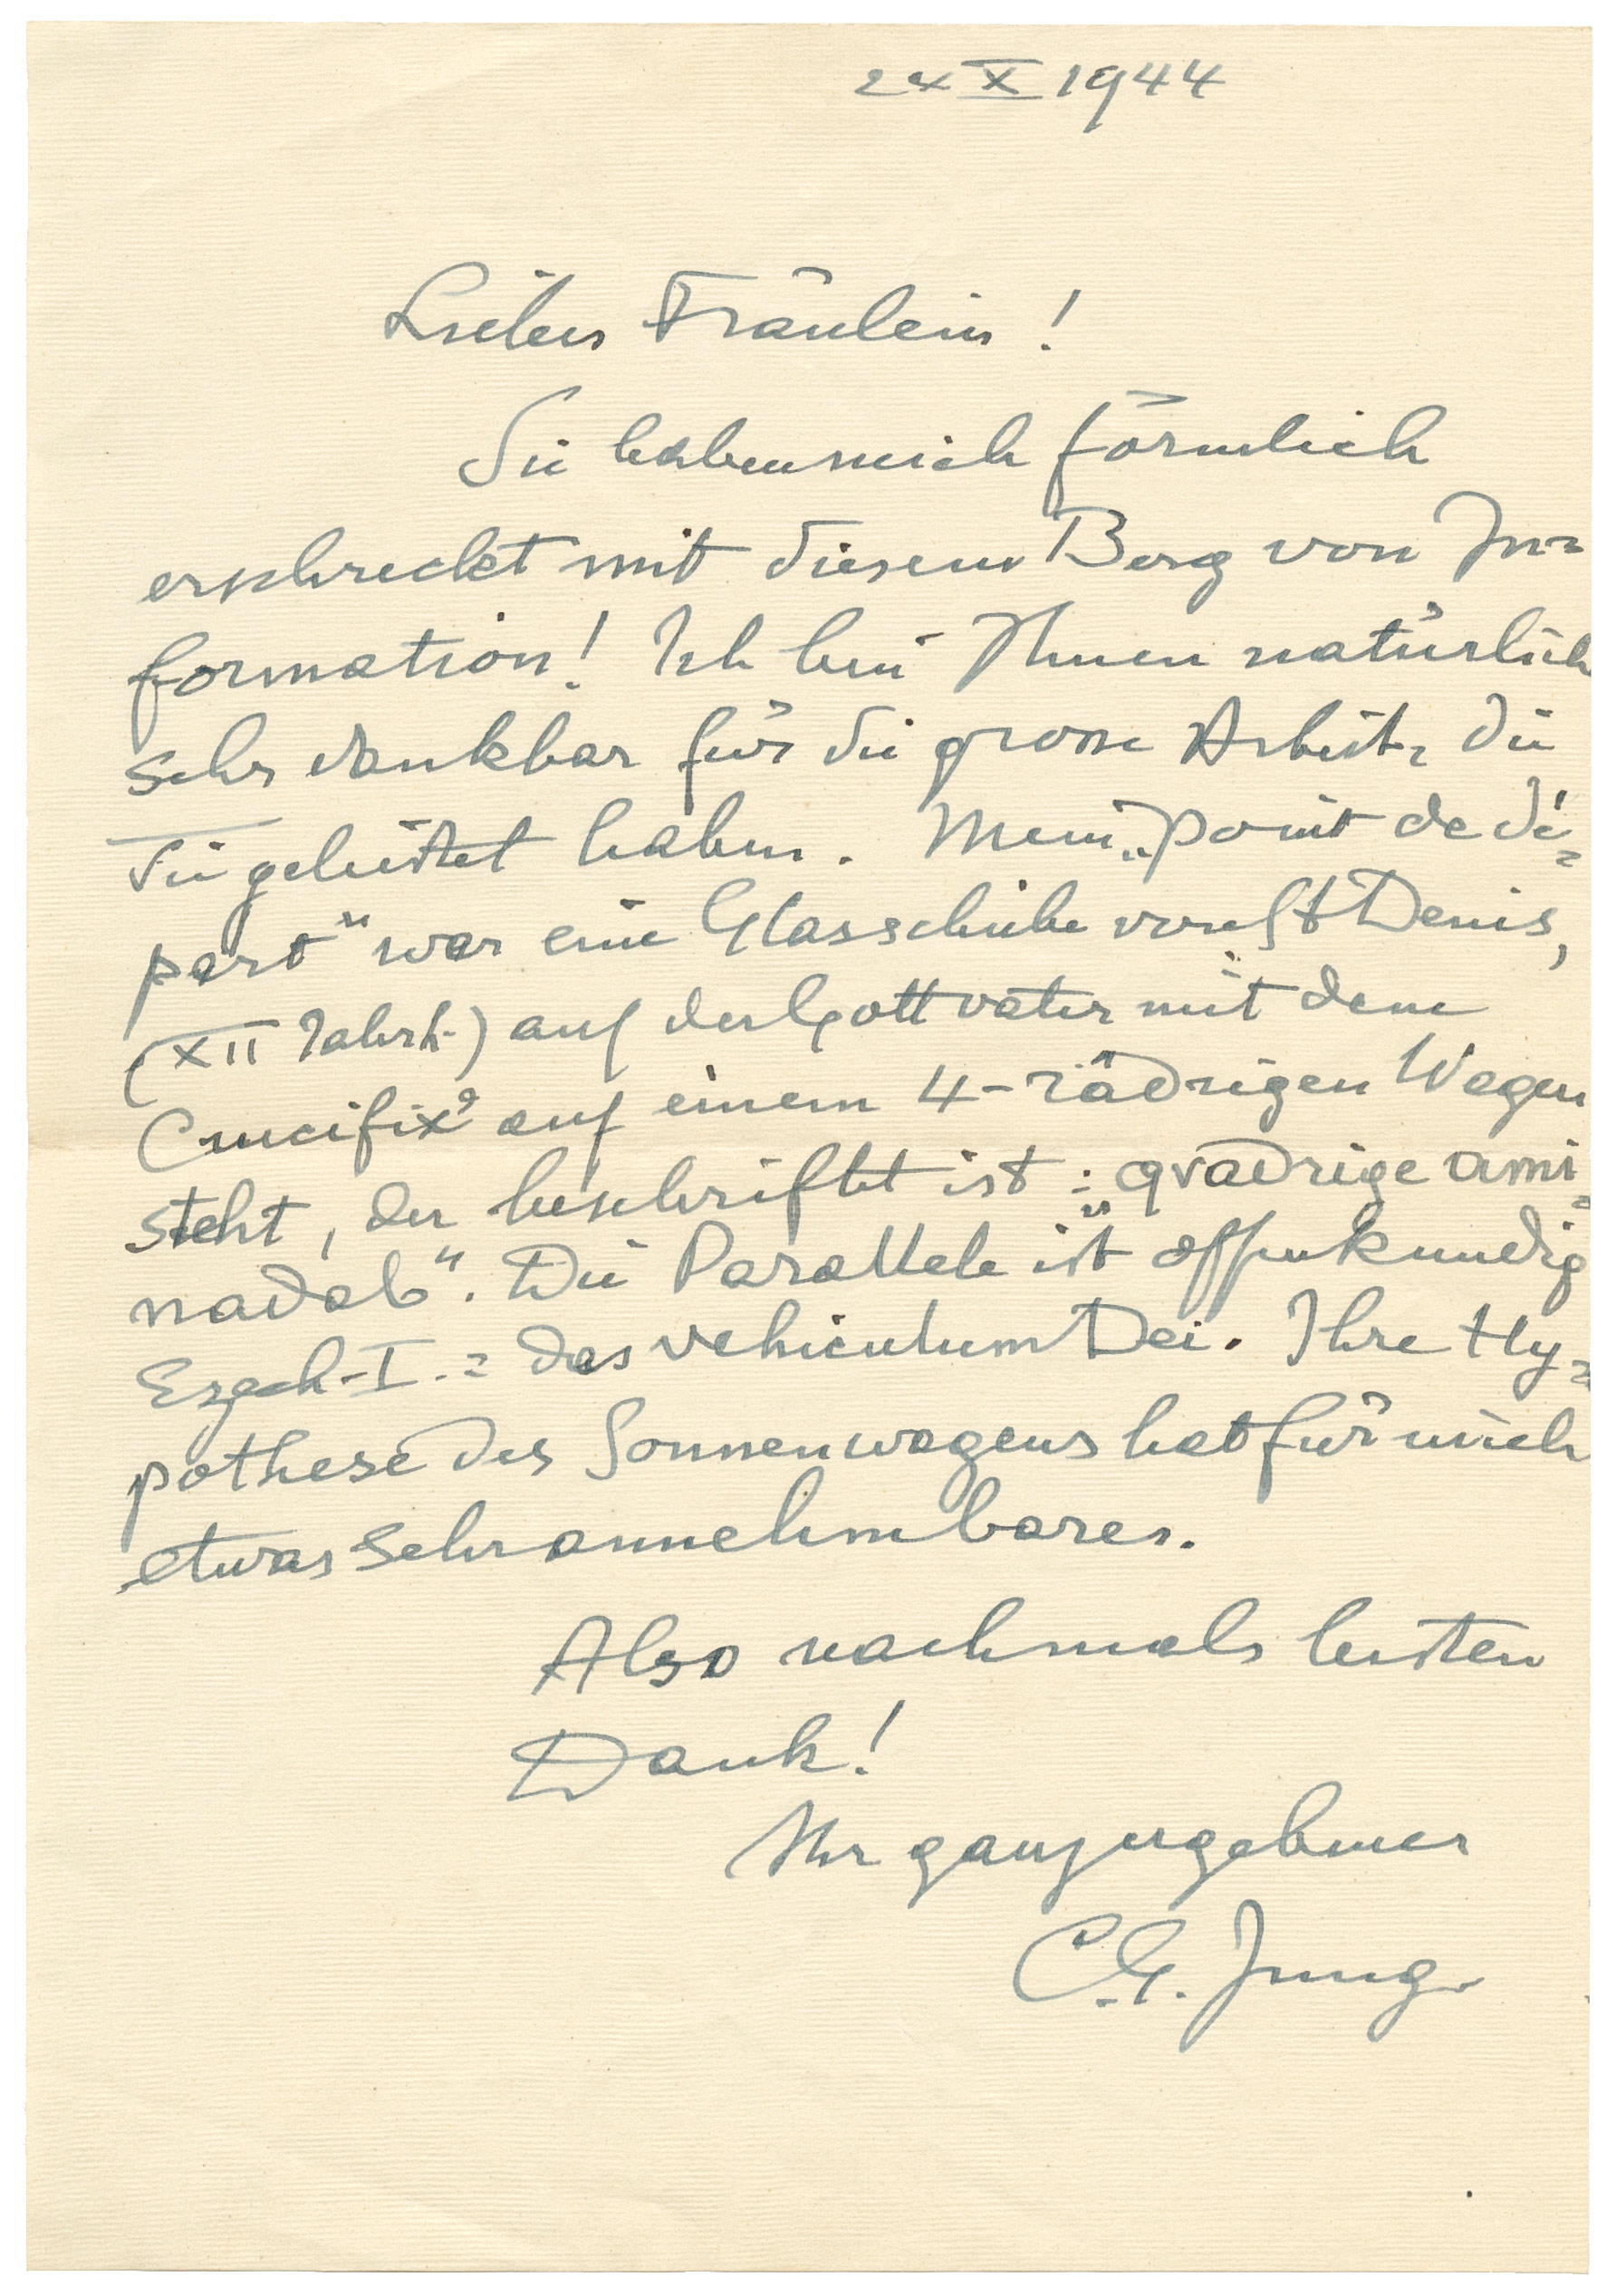 24 X 1944
Liebes Fräulein!
Sie haben mich förmlich
erschreckt mit diesem Berg von In=
formation! Ich bin Ihnen natürlich
sehr dankbar für die grosse Arbeit, die
Sie geleistet haben. Mein „point de dé=
part" war eine Glasscheibe von St Denis,
(XII Jahrh.) auf der Gottvater mit dem
Crucifix auf einem 4-rädrigen Wagen
steht, der beschriftet ist: „qvadrige ami=
nadab". Die Parallele ist offenkundig
Ezech. I. = das vehiculum Dei. Ihre Hy=
pothese des Sonnenwagens hat für mich
etwas sehr annehmbares.
Also nochmals besten
Dank!
Ihr ganz ergebener
C.G. Jung.